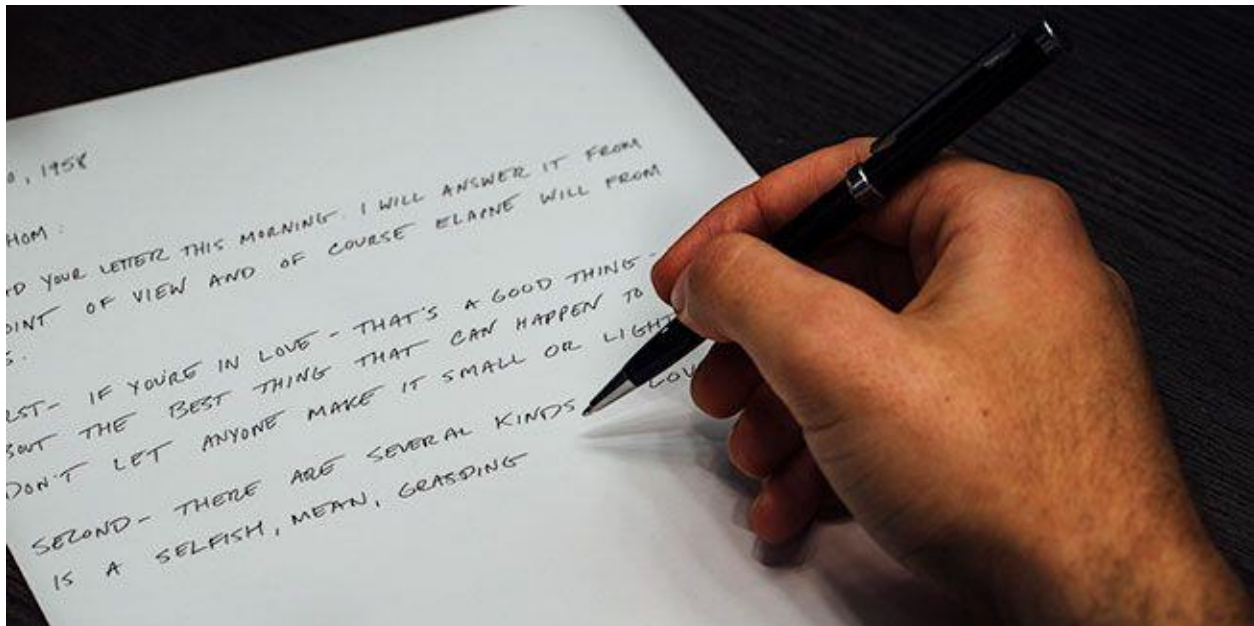 0, 1958
HOM:
D YOUR LETTER THIS MORNING. I WILL ANSWER IT FROM
OINT OF VIEW AND OF COURSE ELAINE WILL FROM
S.
RST- IF YOU'RE IN LOVE - THAT'S A GOOD THING -
BOUT THE BEST THING THAT CAN HAPPEN TO
DON'T LET ANYONE MAKE IT SMALL OR LIGHT
SECOND- THERE ARE SEVERAL KINDS LOV
IS A SELFISH, MEAN, GRASPING